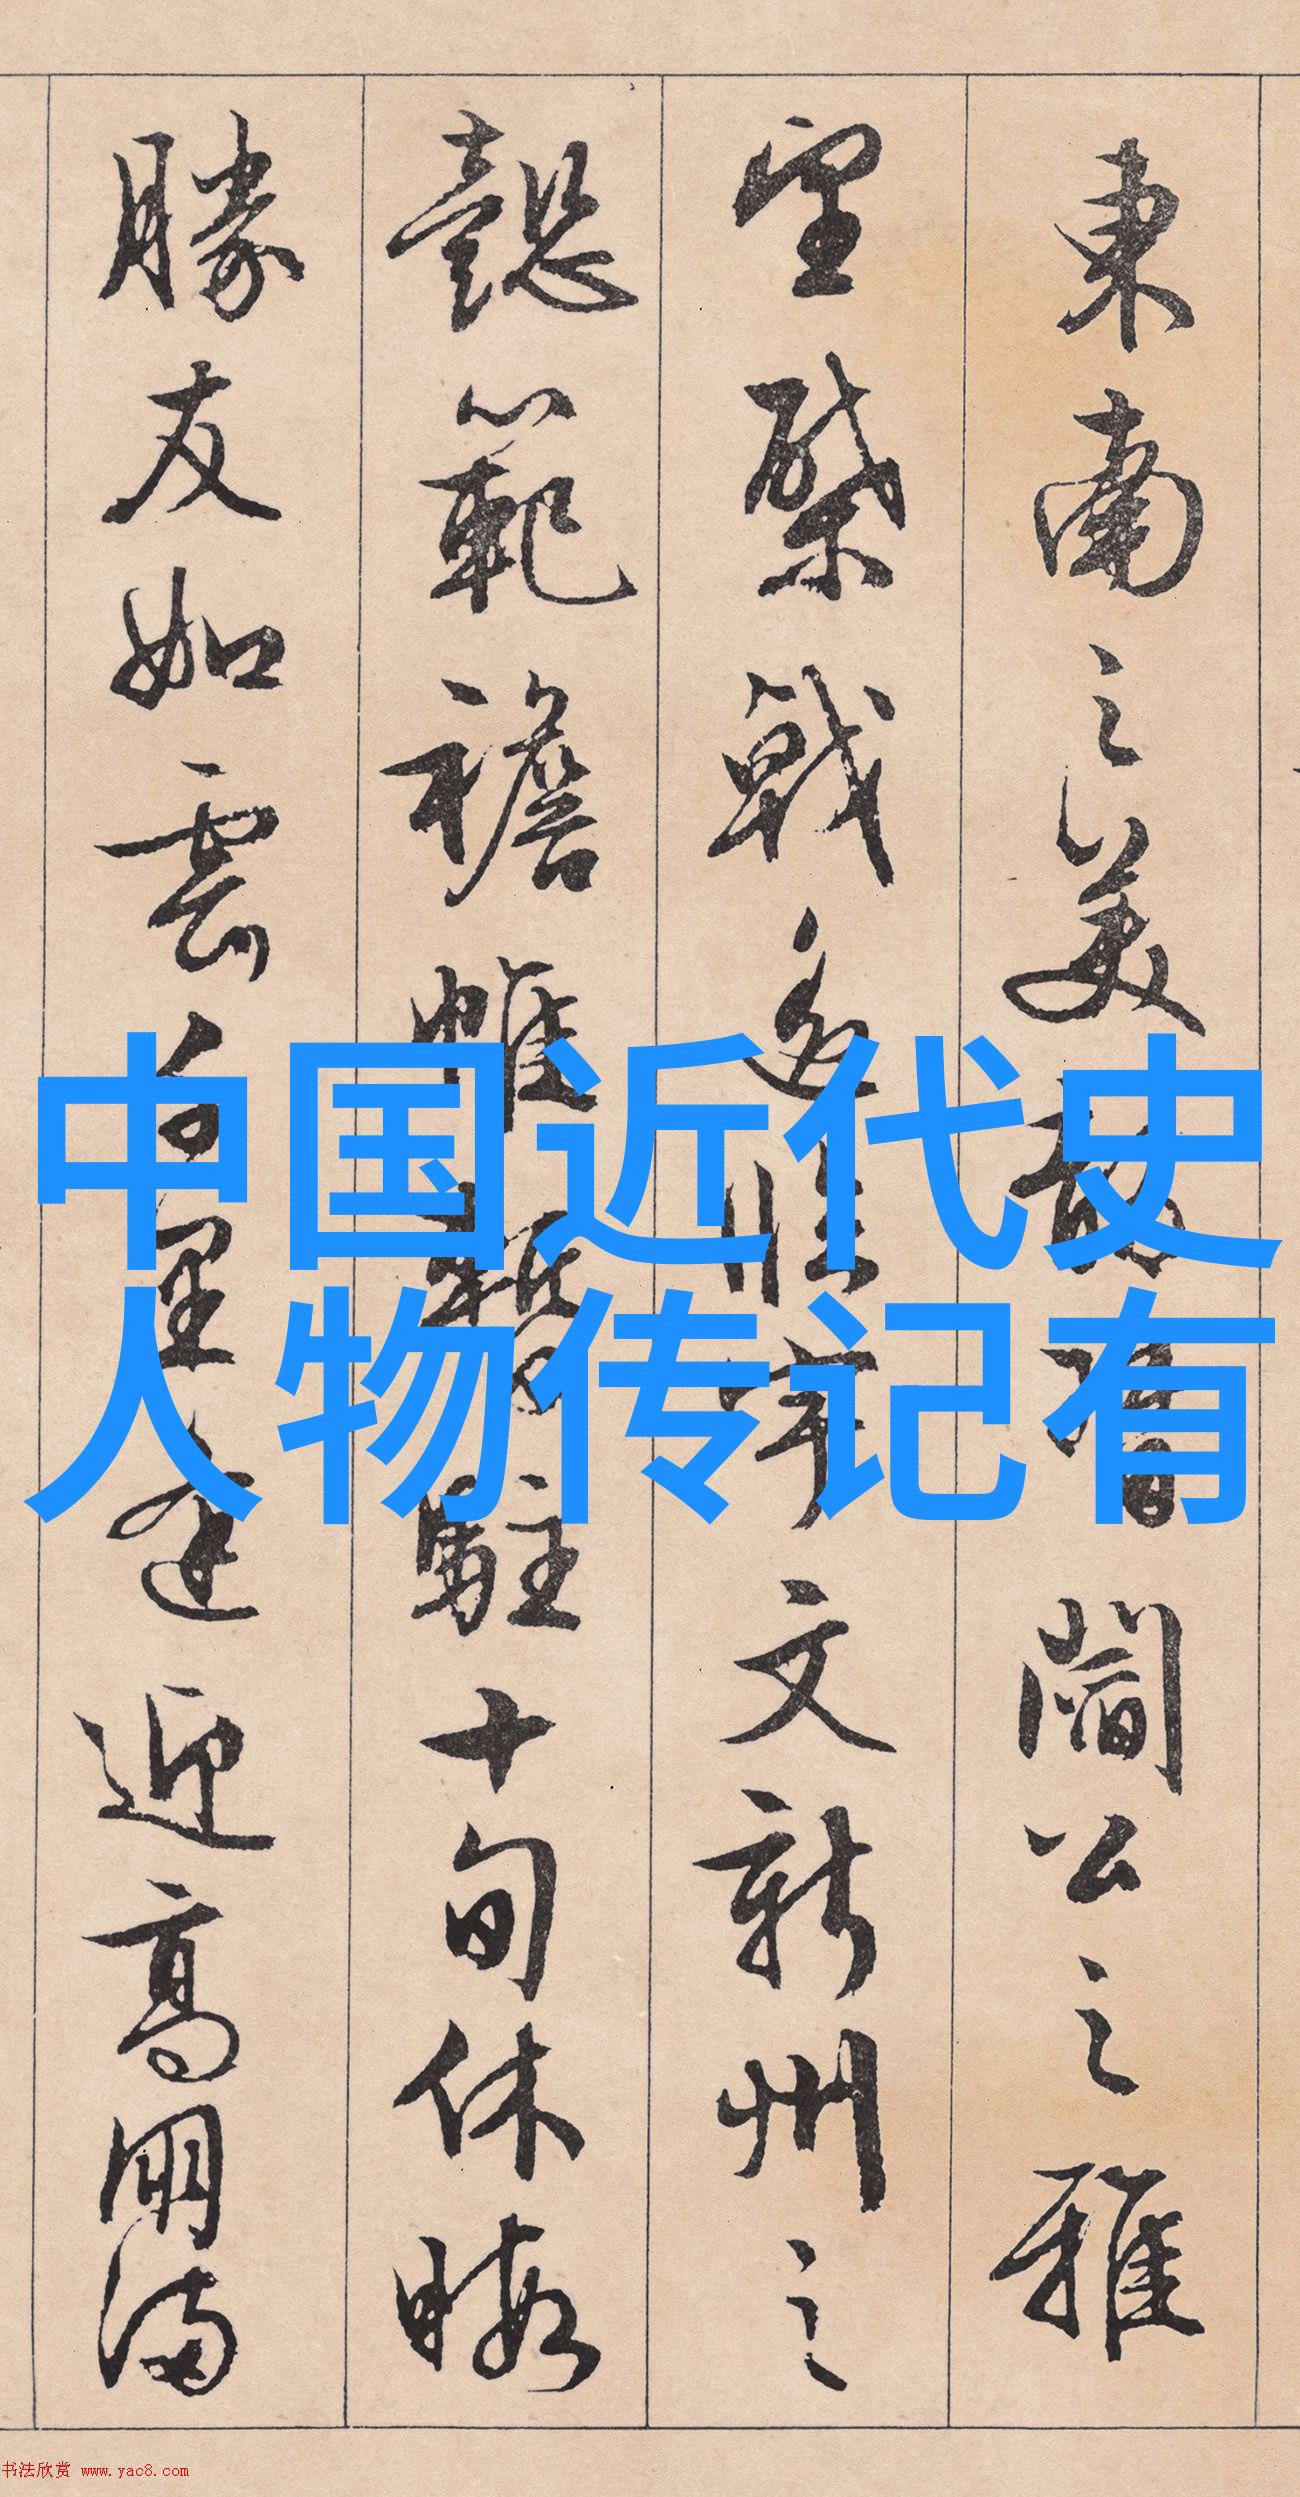 東南之美
闔公之雅
望棨戟遙臨宇文新州之
懿範襜帷暫駐十旬休暇
勝友如雲千里逢迎高朋滿
中国近代史
人物传记有
书法欣赏 www.yac8.com